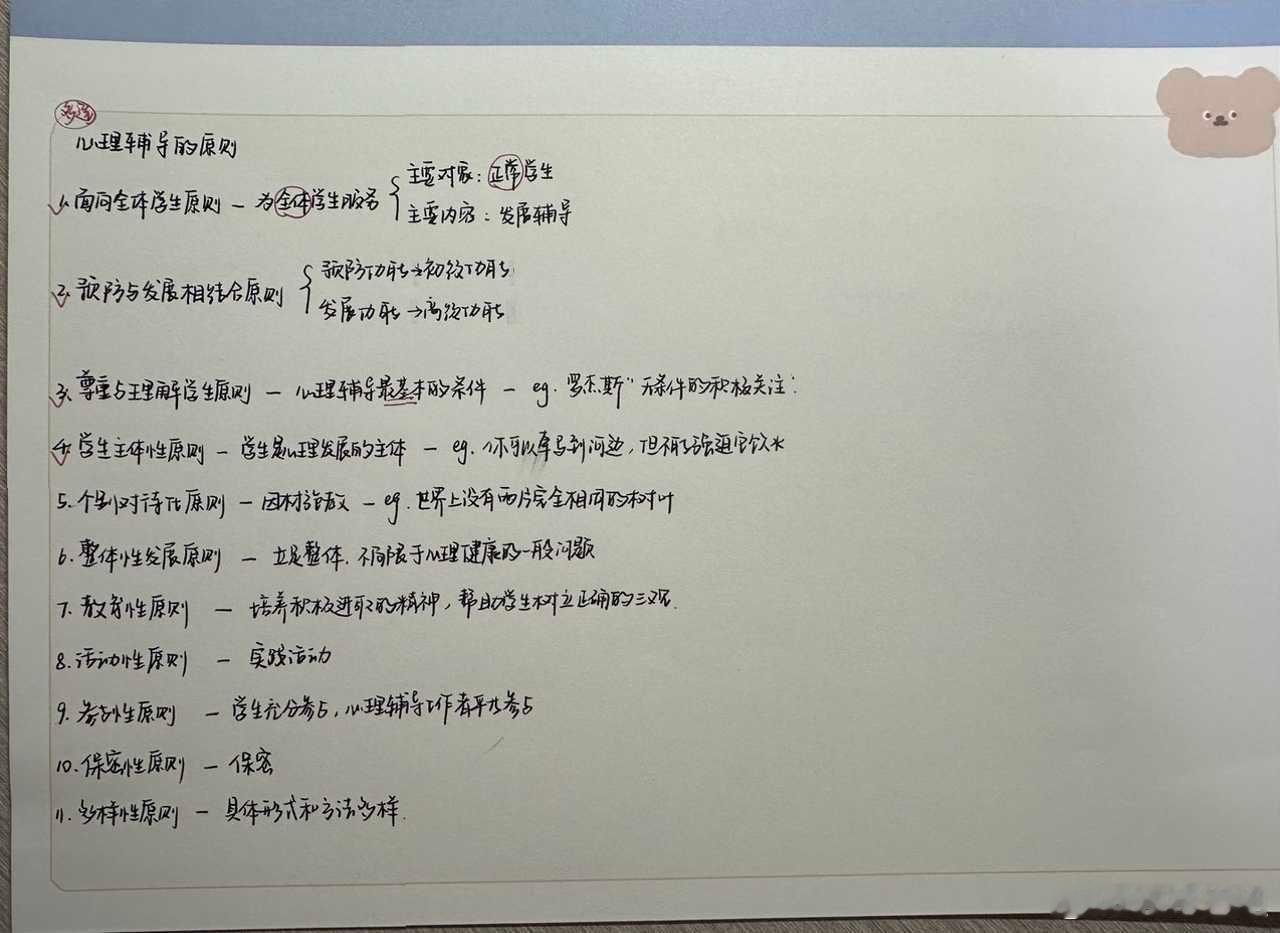 多选
心理辅导的原则
1.面向全体学生原则 — 为全体学生服务 { 主要对象：正常学生
主要内容：发展辅导
2.预防与发展相结合原则 { 预防功能→初级功能
发展功能→高级功能
3.尊重与理解学生原则 — 心理辅导最基本的条件 — eg.罗杰斯"无条件的积极关注"
4.学生主体性原则 — 学生是心理发展的主体 — eg.你可以牵马到河边，但不能强迫它饮水
5.个别对待化原则 — 因材施教 — eg.世界上没有两片完全相同的树叶
6.整体性发展原则 — 立足整体，不局限于心理健康的一般问题
7.教育性原则 — 培养积极进取的精神，帮助学生树立正确的三观.
8.活动性原则 — 实践活动
9.参与性原则 — 学生充分参与，心理辅导工作者平等参与
10.保密性原则 — 保密
11.多样性原则 — 具体形式和方法多样.